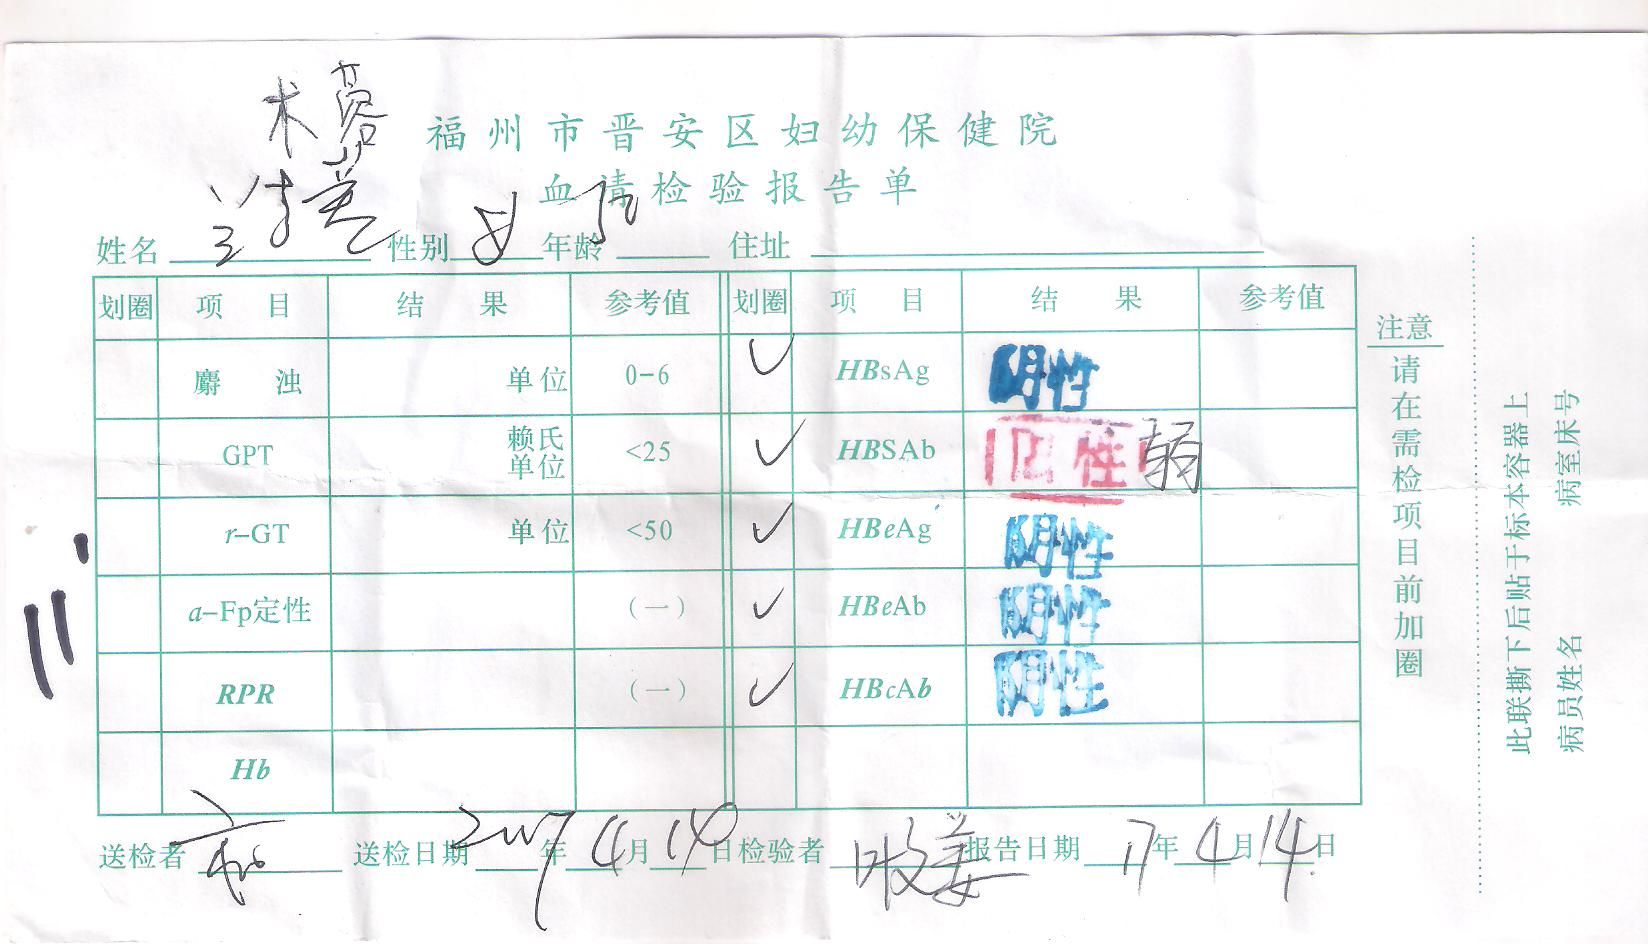 福州市晋安区妇幼保健院
血清检验报告单
姓名 性别 女 年龄 住址
划圈 项目 结果 参考值 划圈 项目 结果 参考值
麝浊 单位 0-6 ✓ HBsAg 阴性
GPT 赖氏单位 <25 ✓ HBSAb 阳性 弱
r-GT 单位 <50 ✓ HBeAg 阴性
a-Fp定性 (一) ✓ HBeAb 阴性
RPR (一) ✓ HBcAb 阴性
Hb
送检者 送检日期 2007年4月14日 检验者 报告日期 年4月14日
注意
请在需检项目前加圈
此联撕下后贴于标本容器上
病员姓名 病室床号